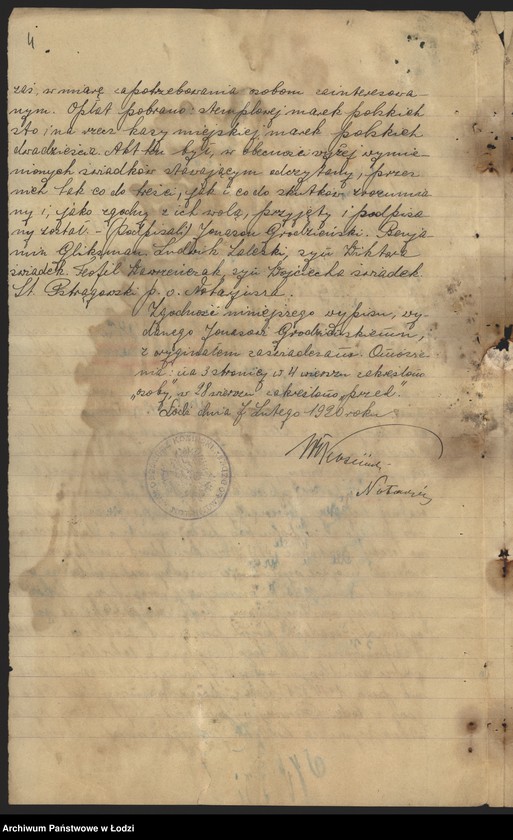 4
zaś, w miarę zapotrzebowania osobom zainteresowa-
nym. Opłat pobrano: stemplowej marek polskich
sto i na rzecz kasy miejskiej marek polskich
dwadzieścia. Akt ten był, w obecności wyżej wymie-
nionych świadków stawającym odczytany, przez
nich tak co do treści, jak i co do skutków zrozumia
ny i, jako zgodny z ich wolą, przyjęty i podpisa
ny został. - (Podpisali) Jonasson Grodzieński. Benja
min Gliksman. Ludwik Zaleski, syn Wiktora
świadek. Teofil Wawrzeńczak, syn Wojciecha świadek.
St. Pstrągowski p. o. Notarjusza.
Zgodność niniejszego wypisu, wy-
danego Jonasowi Grodzieńskiemu,
z oryginałem zaświadczam. Omówie
nia: na 3 stronicy w 4 wierszu zakreślono
"osoby", w 28 wierszu zakreślono "przed."
Łódź dnia Lutego 1920 roku
Notarjusz
Archiwum Państwowe w Łodzi